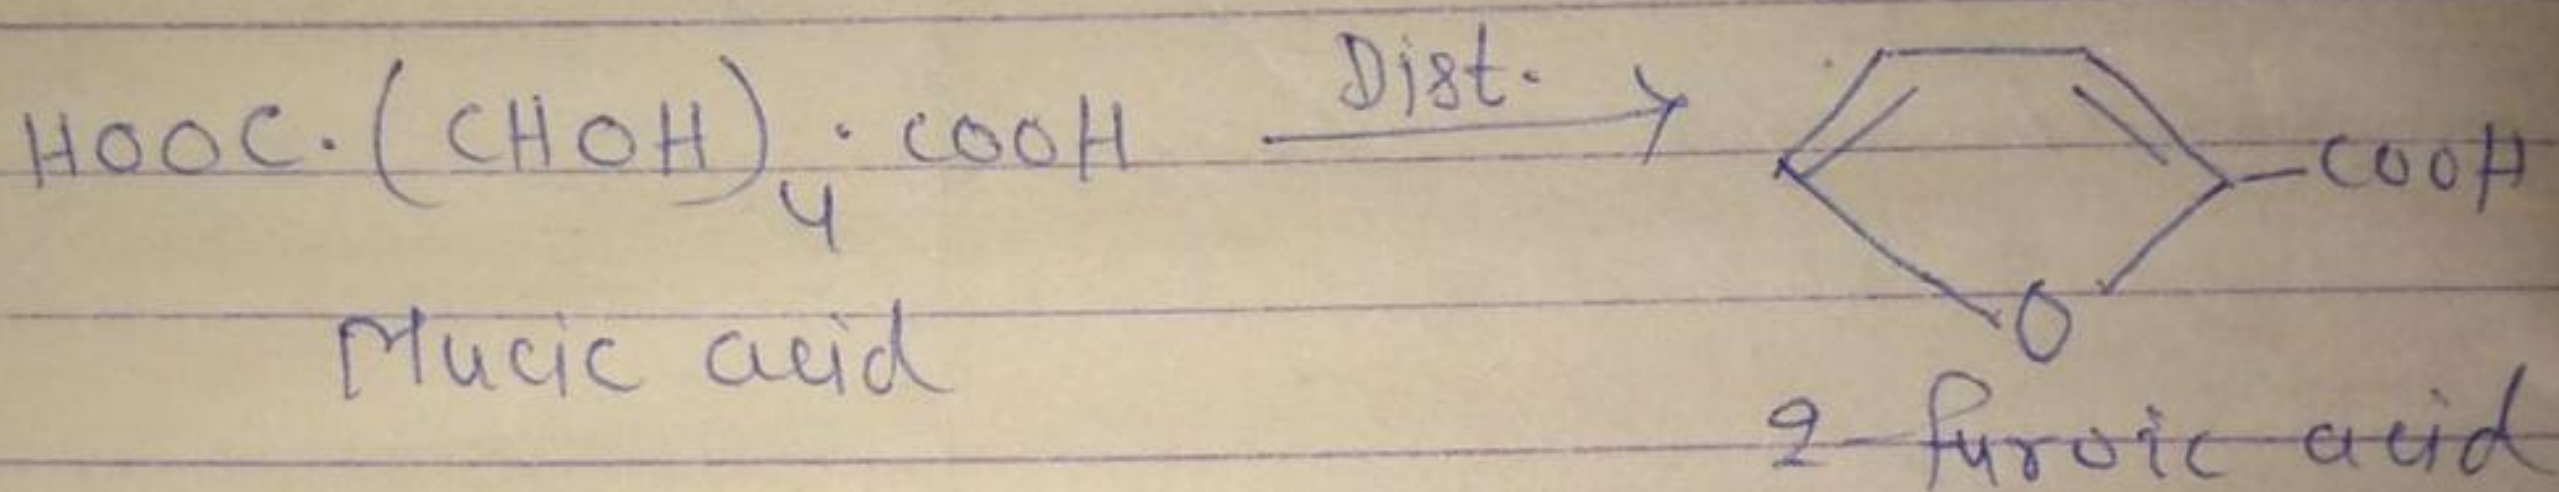 HOOC.(CHOH)4.COOH Dist. → COOH
O
Mucic acid
2-furoic acid